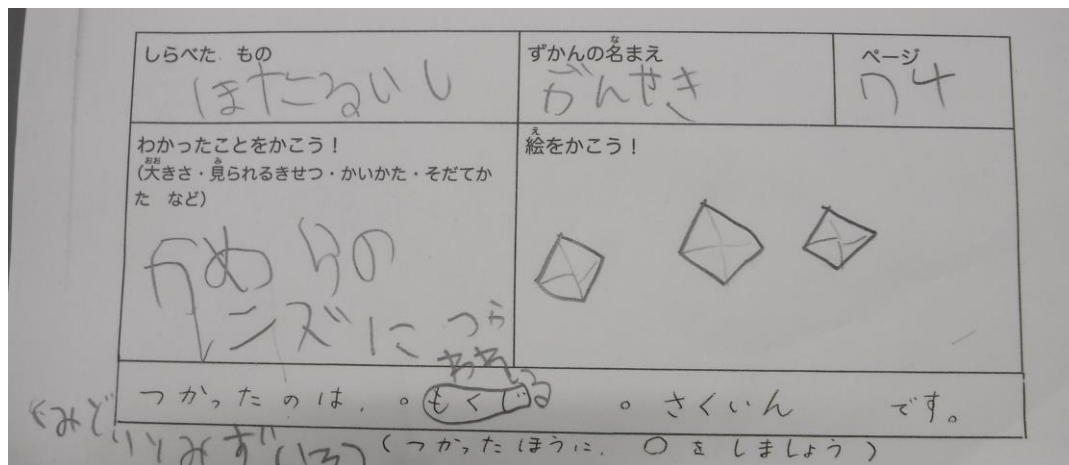 しらべた もの
ほたるいし
ずかんの名まえ
がんせき
ページ
74
わかったことをかこう！
（大きさ・見られるきせつ・かいかた・そだてか
た など）
かめらの
レンズに つか
われている
絵をかこう！
つかったのは、 。もくじ 。さくいん です。
（つかったほうに、〇をしましょう）
（みどり、みずいろ）